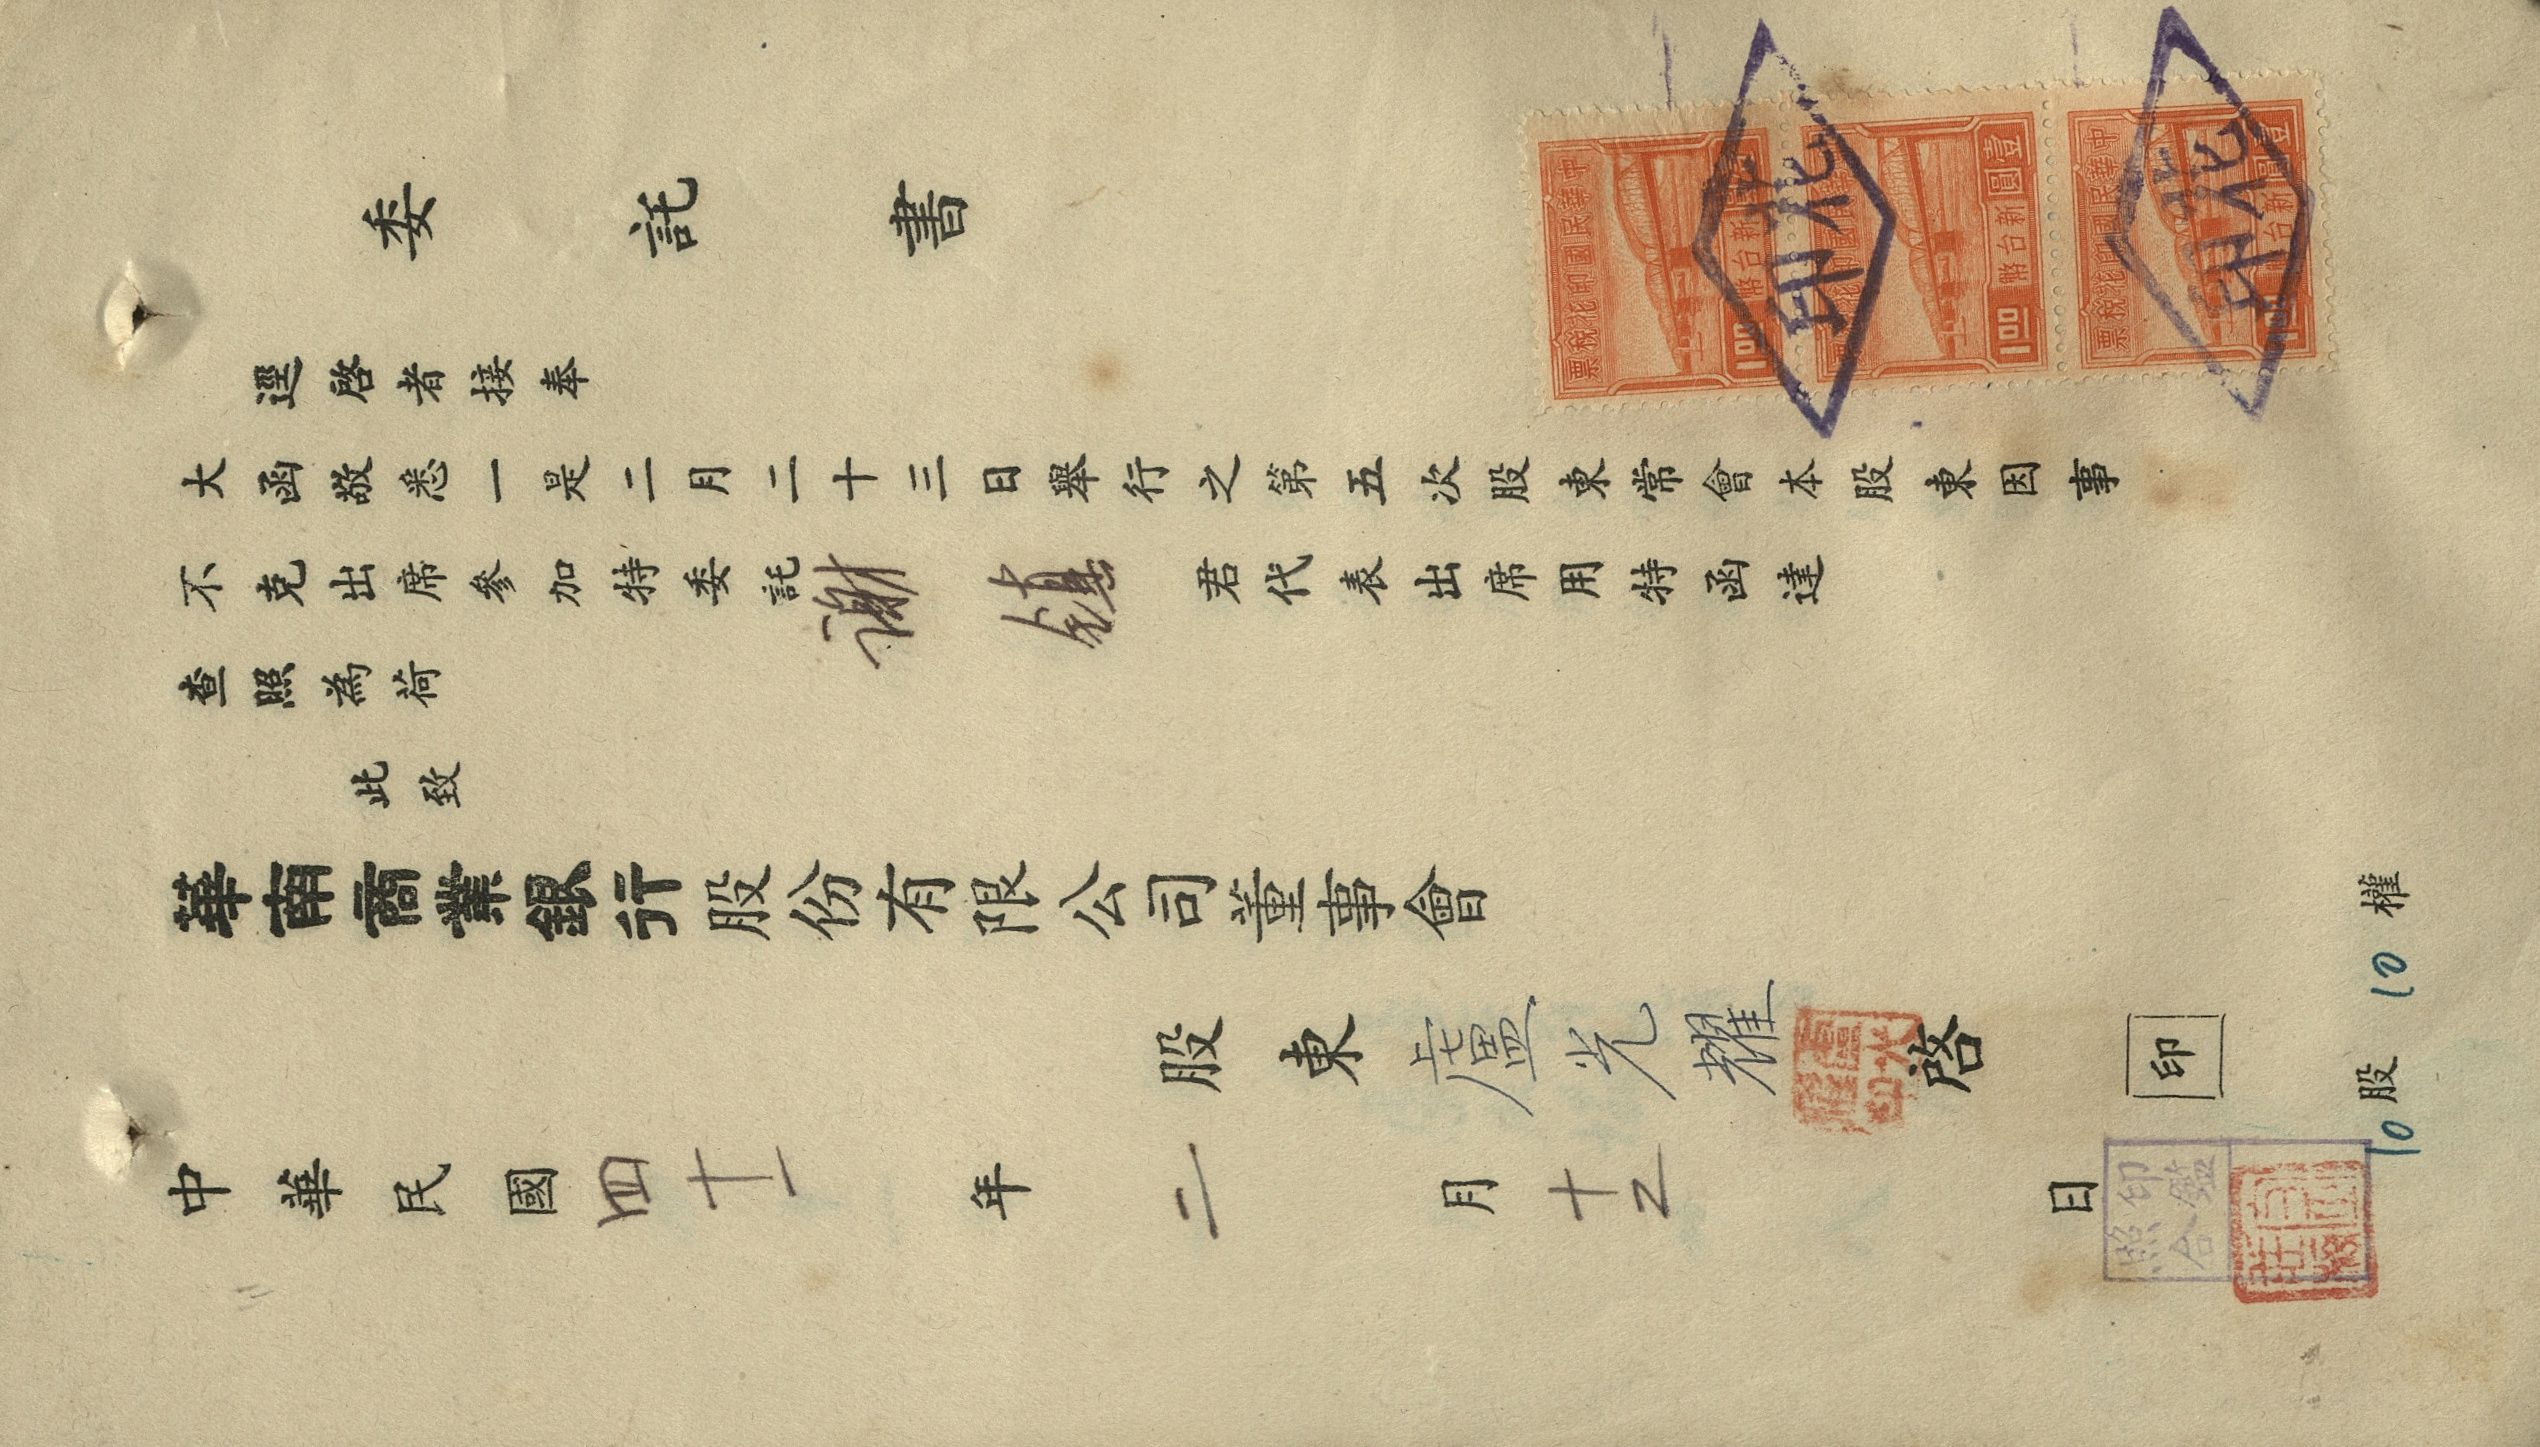 委託書
逕啓者接奉
大函敬悉一是二月二十三日舉行之第五次股東常會本股東因事
不克出席參加特委託謝鎮君代表出席用特函達
查照為荷
此致
華南商業銀行股份有限公司董事會
股東盧光耀啓 印
中華民國四十一年二月十乙日
10股 10權
印鑑
照合
中華民國印花稅票
壹圓
新台幣
1.00
中華民國印花稅票
壹圓
新台幣
1.00
中華民國印花稅票
壹圓
新台幣
1.00
印花
印花